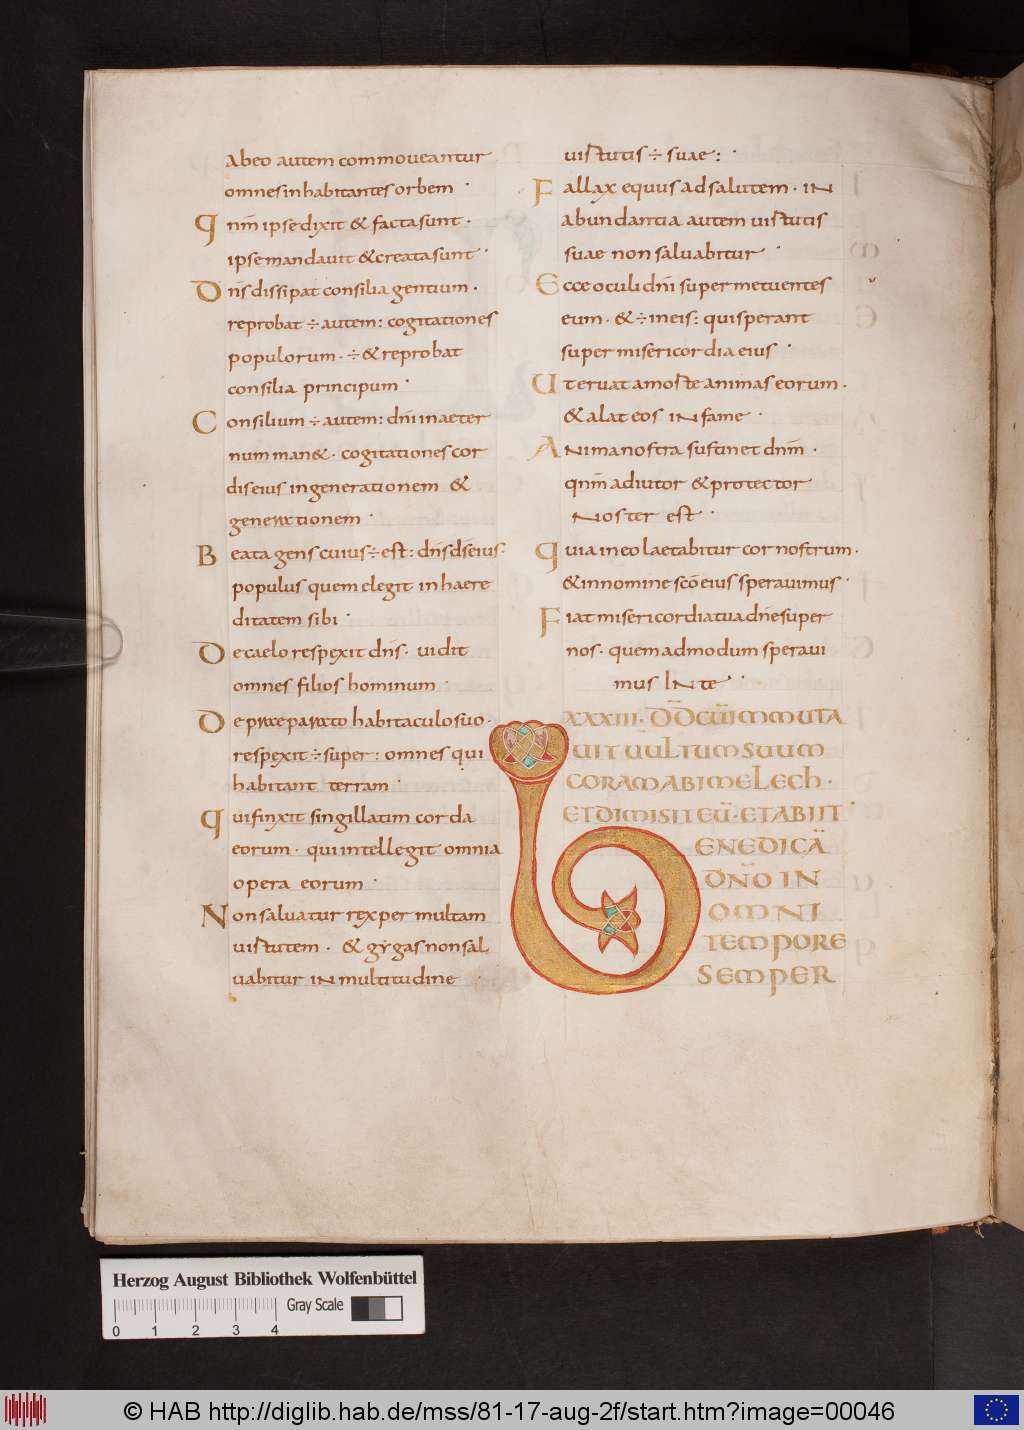 Abeo autem commoveantur
omnes inhabitantes orbem ·
Qnm̄ ipse dixit & facta sunt ·
ipse mandavit & creata sunt ·
Dn̄s dissipat consilia gentium ·
reprobat ÷ autem : cogitationes
populorum · ÷ & reprobat
consilia principum ·
Consilium ÷ autem : dn̄i in aeter
num man& · cogitationes cor
dis eius in generationem &
generationem ·
Beata gens cuius ÷ est : dn̄s d̄s eius ·
populus quem elegit in haere
ditatem sibi ·
De caelo respexit dn̄s · vidit
omnes filios hominum ·
De praeparato habitaculo suo ·
respexit ÷ super : omnes qui
habitant terram ·
Qui finxit singillatim corda
eorum · qui intellegit omnia
opera eorum ·
Non salvatur rex per multam
virtutem · & gygas non sal
vabitur in multitudine
virtutis ÷ suae : ·
Fallax equus ad salutem · in
abundantia autem virtutis
suae non salvabitur ·
Ecce oculi dn̄i super metuentes
eum · & ÷ in eis : qui sperant
super misericordia eius ·
Ut eruat a morte animas eorum ·
& alat eos in fame ·
Anima nostra sustinet dnm̄ ·
qnm̄ adiutor & protector
noster est ·
Quia in eo laetabitur cor nostrum ·
& in nomine sc̄o eius speravimus ·
Fiat misericordia tua dn̄e super
nos · quemadmodum speravi
mus in te ·
XXXIII · D̄D̄ CŪ IMMUTA
VIT VULTUM SUUM
CORAM ABIMELECH ·
ET DIMISIT EŪ · ET ABIIT ·
BENEDICĀ
DN̄O IN
OMNI
TEMPORE
SEMPER
Herzog August Bibliothek Wolfenbüttel
Gray Scale
0 1 2 3 4
© HAB http://diglib.hab.de/mss/81-17-aug-2f/start.htm?image=00046